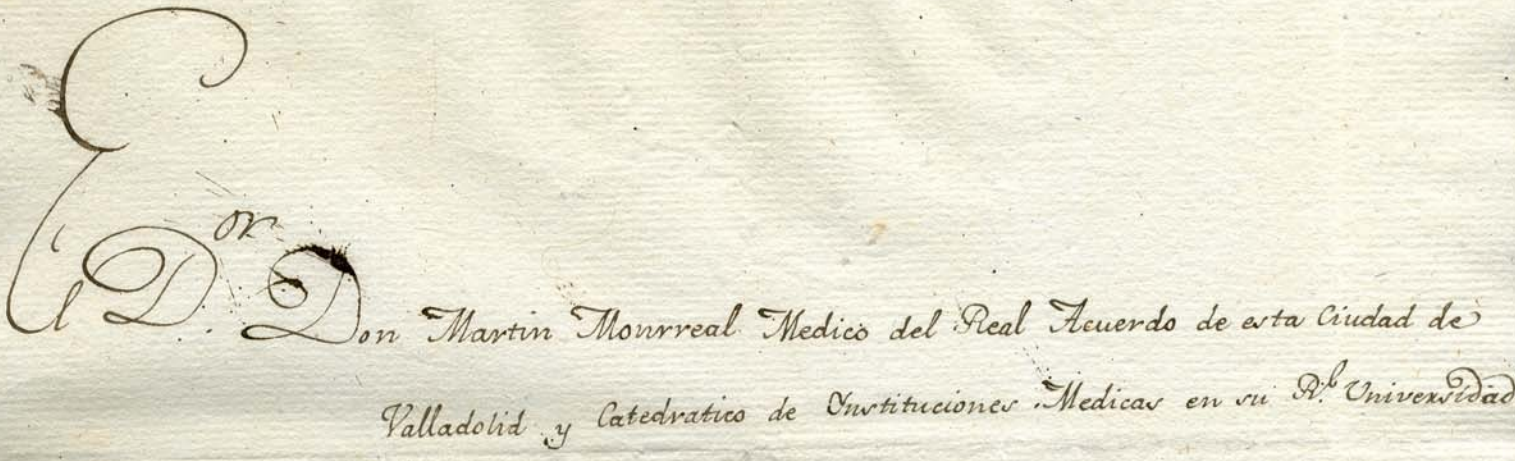 El D.or Don Martin Monrreal Medico del Real Acuerdo de esta Ciudad de
Valladolid y Catedratico de Ynstituciones Medicas en su R.l Universidad